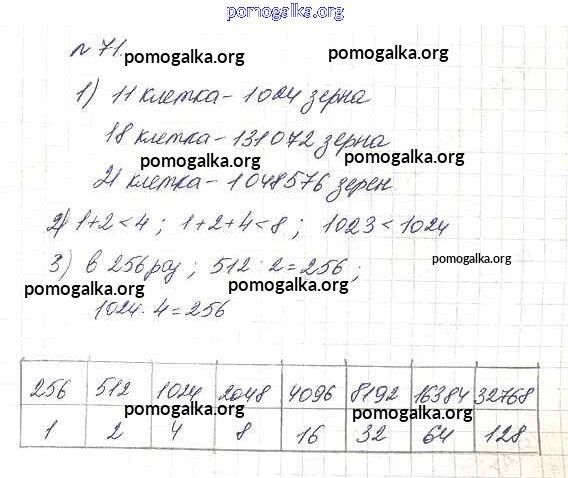 pomogalka.org
№ 71.
pomogalka.org
pomogalka.org
pomogalka.org
1) 11 клетка - 1024 зерна
18 клетка - 131072 зерна
pomogalka.org
pomogalka.org
21 клетка - 1048576 зерен
2) 1+2<4 ; 1+2+4<8 ; 1023<1024
3) в 256 раз ; 512 : 2 = 256 ;
pomogalka.org
pomogalka.org
pomogalka.org
1024 : 4 = 256
256 512 1024 2048 4096 8192 16384 32768
pomogalka.org
pomogalka.org
1 2 4 8 16 32 64 128